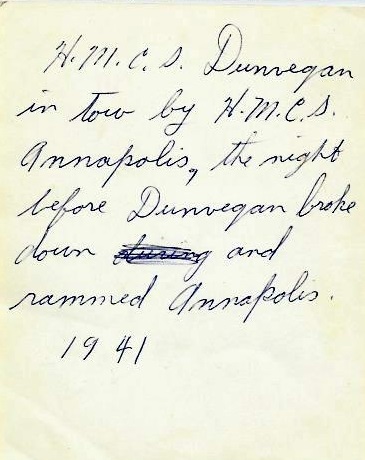 H.M.C.S. Dunvegan
in tow by H.M.C.S.
Annapolis, the night
before Dunvegan broke
down during and
rammed Annapolis.
1941